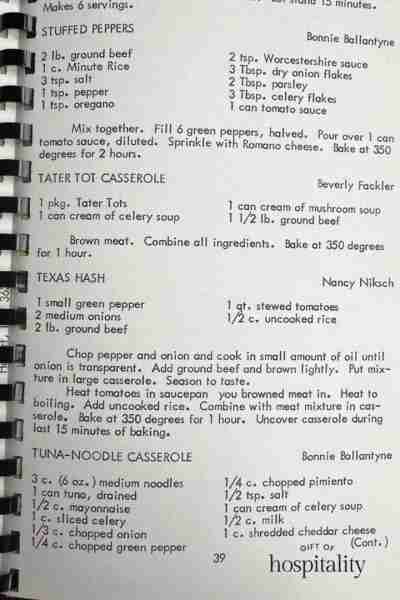 Makes 6 servings.
stand 15 minutes.
STUFFED PEPPERS
Bonnie Ballantyne
2 lb. ground beef
1 c. Minute Rice
3 tsp. salt
1 tsp. pepper
1 tsp. oregano
2 tsp. Worcestershire sauce
3 Tbsp. dry onion flakes
2 Tbsp. parsley
3 Tbsp. celery flakes
1 can tomato sauce
Mix together. Fill 6 green peppers, halved. Pour over 1 can
tomato sauce, diluted. Sprinkle with Romano cheese. Bake at 350
degrees for 2 hours.
TATER TOT CASSEROLE
Beverly Fackler
1 pkg. Tater Tots
1 can cream of celery soup
1 can cream of mushroom soup
1 1/2 lb. ground beef
Brown meat. Combine all ingredients. Bake at 350 degrees
for 1 hour.
TEXAS HASH
Nancy Niksch
1 small green pepper
2 medium onions
2 lb. ground beef
1 qt. stewed tomatoes
1/2 c. uncooked rice
Chop pepper and onion and cook in small amount of oil until
onion is transparent. Add ground beef and brown lightly. Put mix-
ture in large casserole. Season to taste.
Heat tomatoes in saucepan you browned meat in. Heat to
boiling. Add uncooked rice. Combine with meat mixture in cas-
serole. Bake at 350 degrees for 1 hour. Uncover casserole during
last 15 minutes of baking.
TUNA-NOODLE CASSEROLE
Bonnie Ballantyne
3 c. (6 oz.) medium noodles
1 can tuna, drained
1/2 c. mayonnaise
1 c. sliced celery
1/3 c. chopped onion
1/4 c. chopped green pepper
1/4 c. chopped pimiento
1/2 tsp. salt
1 can cream of celery soup
1/2 c. milk
1 c. shredded cheddar cheese
(Cont.)
39
GIFT OF
hospitality